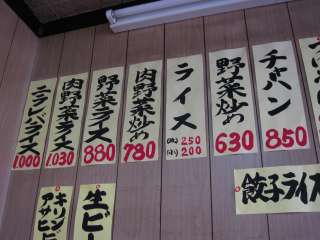 チャハン
850
野菜炒め
630
ライス
(大) 250
(小) 200
肉野菜炒め
780
野菜ライス
880
肉野菜ライス
1,030
ニラレバライス
1000
餃子ライス
生ビー
キリン
アサヒ